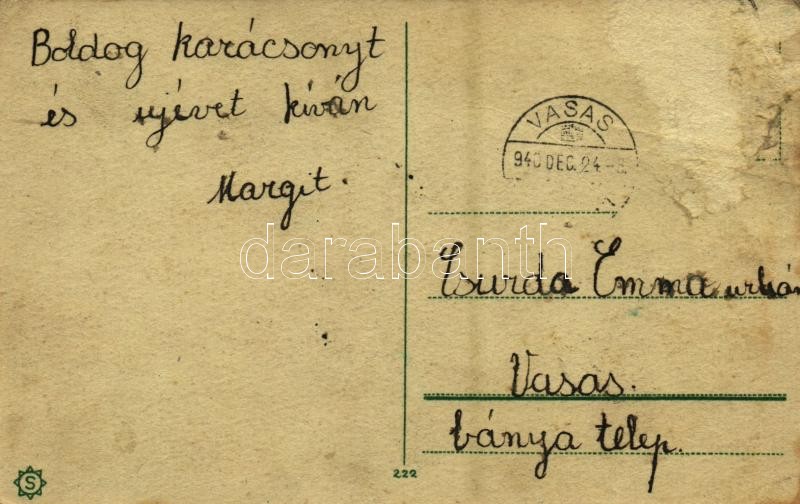 Boldog karácsonyt
és ujévet kíván
Margit.
VASAS
940 DEC. 24
darabanth
Csurda Emma urhár
Vasas.
bánya telep.
S
222